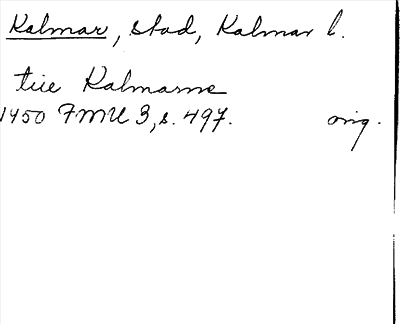 Kalmar, stad, Kalmar l.
tiie Kalmarne
1450 FMU 3, s. 497. orig.